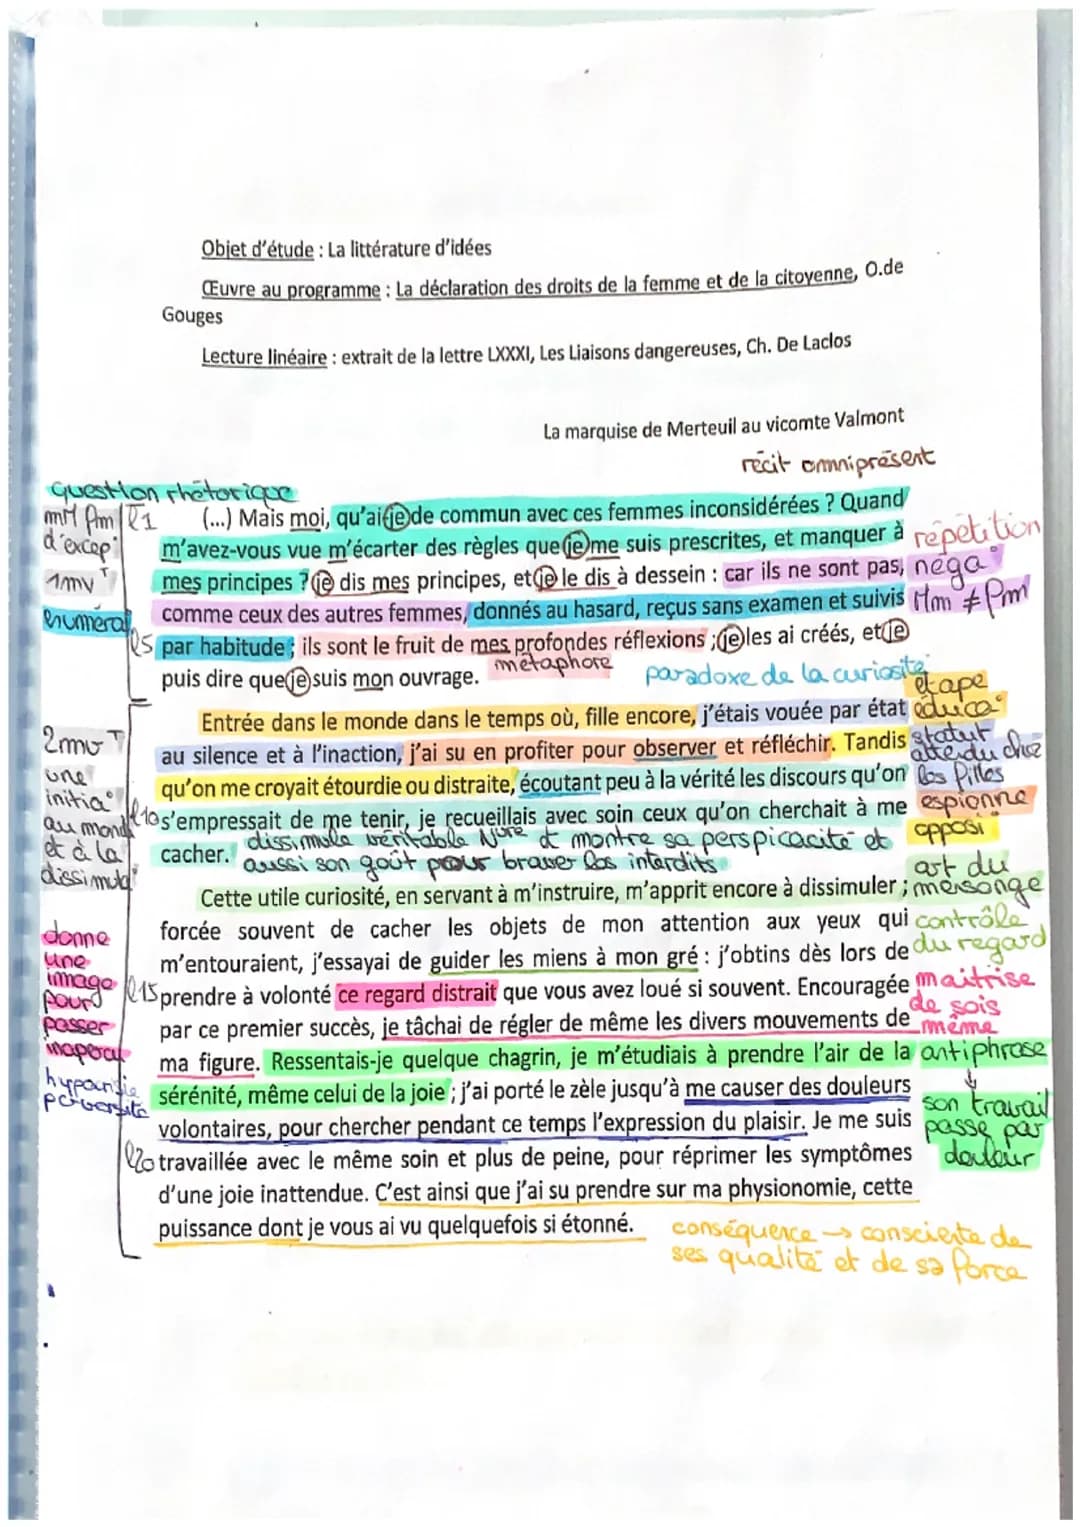 Objet d'étude : La littérature d'idées
Œuvre au programme : La déclaration des droits de la femme et de la citoyenne, O.de
Gouges
Lecture linéaire : extrait de la lettre LXXXI, Les Liaisons dangereuses, Ch. De Laclos
La marquise de Merteuil au vicomte Valmont
récit omniprésent
question rhétorique
l1 (...) Mais moi, qu'ai-je de commun avec ces femmes inconsidérées ? Quand
d'excep°
m'avez-vous vue m'écarter des règles que je me suis prescrites, et manquer à
répétition
1mvT
mes principes ? je dis mes principes, et je le dis à dessein : car ils ne sont pas,
néga°
énuméra°
comme ceux des autres femmes, donnés au hasard, reçus sans examen et suivis
Mm ≠ fm
l5 par habitude ; ils sont le fruit de mes profondes réflexions ; je les ai créés, et je
métaphore
puis dire que je suis mon ouvrage.
paradoxe de la curiosité
étape
éduca°
Entrée dans le monde dans le temps où, fille encore, j'étais vouée par état
2mvT
au silence et à l'inaction, j'ai su en profiter pour observer et réfléchir. Tandis
statut
attendu chez
les filles
une
initia°
au monde
et à la
dissimula°
qu'on me croyait étourdie ou distraite, écoutant peu à la vérité les discours qu'on
l10 s'empressait de me tenir, je recueillais avec soin ceux qu'on cherchait à me
espionne
opposi°
cacher.
dissimule véritable Nure et montre sa perspicacité et
aussi son goût pour braver les interdits
art du
mensonge
Cette utile curiosité, en servant à m'instruire, m'apprit encore à dissimuler ;
forcée souvent de cacher les objets de mon attention aux yeux qui
contrôle
du regard
m'entouraient, j'essayai de guider les miens à mon gré : j'obtins dès lors de
donne
une
image
pour
passer
inaperçu
l15 prendre à volonté ce regard distrait que vous avez loué si souvent. Encouragée
maitrise
de sois
même
par ce premier succès, je tâchai de régler de même les divers mouvements de
ma figure. Ressentais-je quelque chagrin, je m'étudiais à prendre l'air de la
antiphrase
↓
son travail
passe par
douleur
perversité
sérénité, même celui de la joie ; j'ai porté le zèle jusqu'à me causer des douleurs
volontaires, pour chercher pendant ce temps l'expression du plaisir. Je me suis
l20 travaillée avec le même soin et plus de peine, pour réprimer les symptômes
d'une joie inattendue. C'est ainsi que j'ai su prendre sur ma physionomie, cette
puissance dont je vous ai vu quelquefois si étonné.
conséquence → consciente de
ses qualité et de sa force